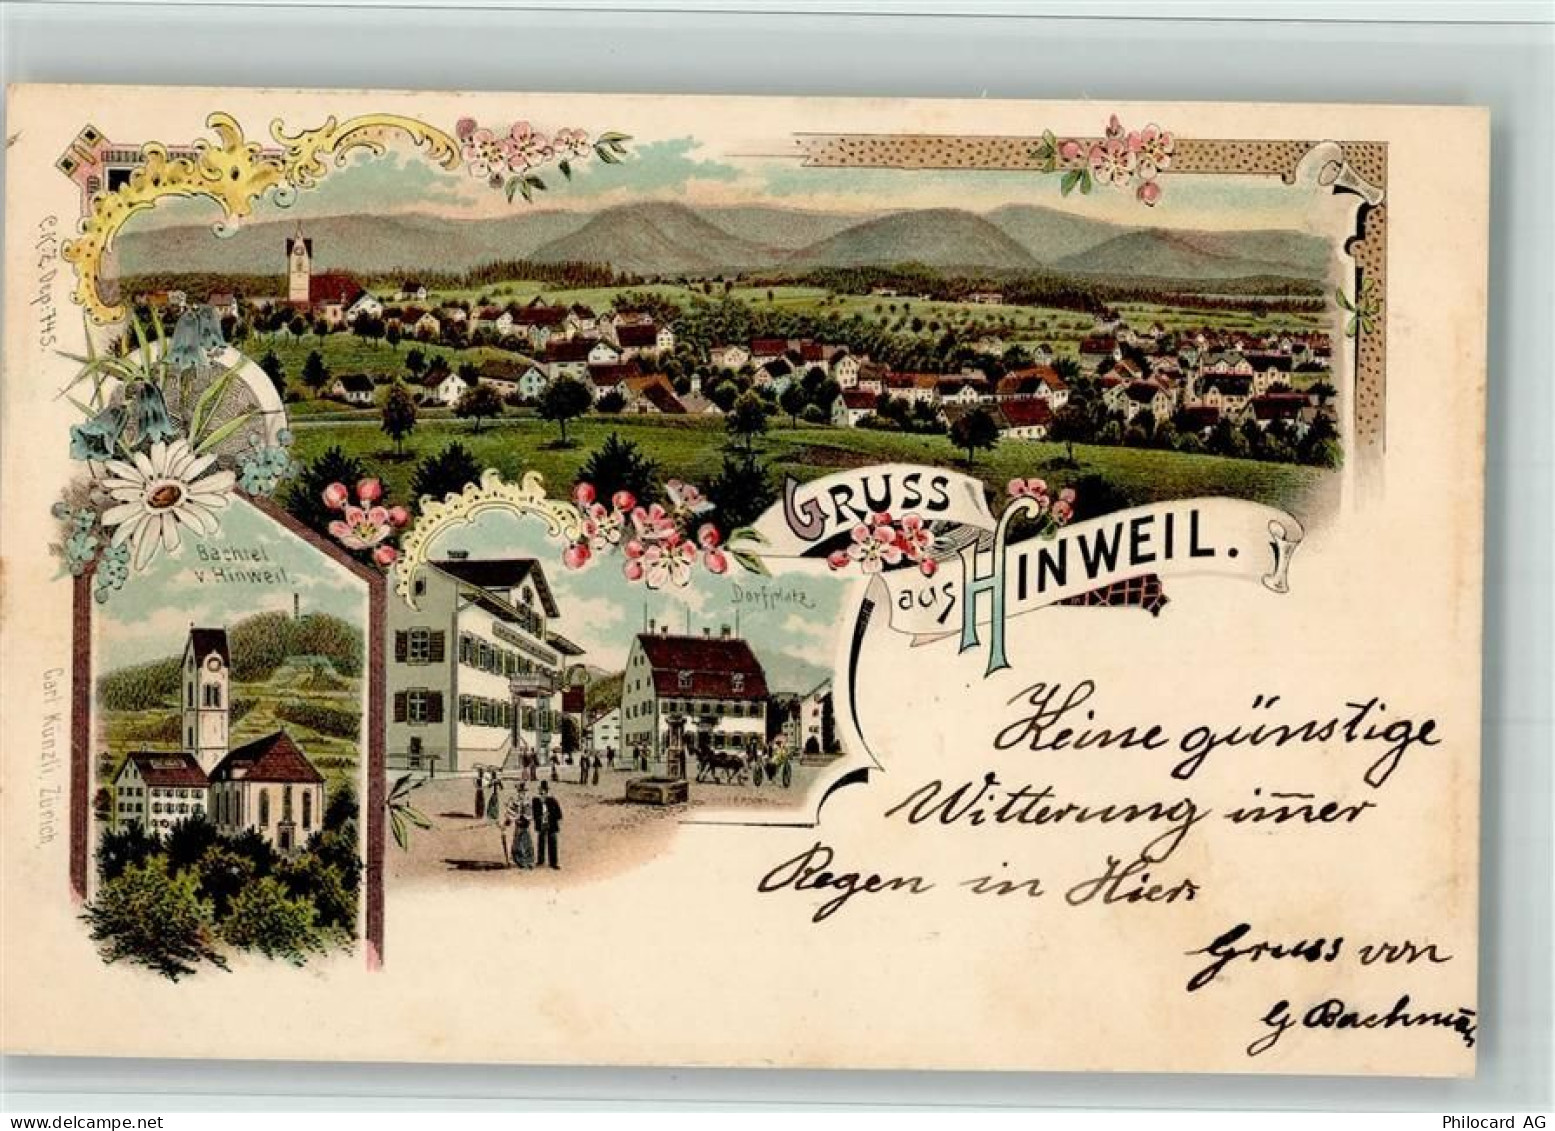 C.K.Z. Dep. 745.
Carl Künzli, Zürich.
Bachtel
v. Hinweil.
Dorfplatz
GRUSS
aus HINWEIL.
Keine günstige
Witterung im̄er
Regen in Hier
Gruss von
G Bachman̄
Philocard AG